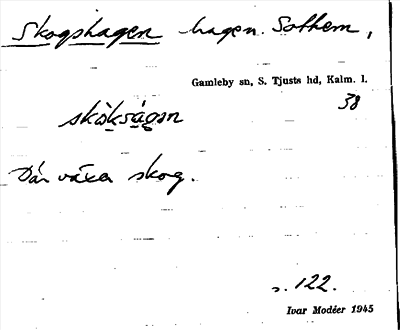 Skogshagen hagen. Sothem,
Gamleby sn, S. Tjusts hd, Kalm. l.
38
skòkságən
Där växer skog.
s. 122.
Ivar Modéer 1945